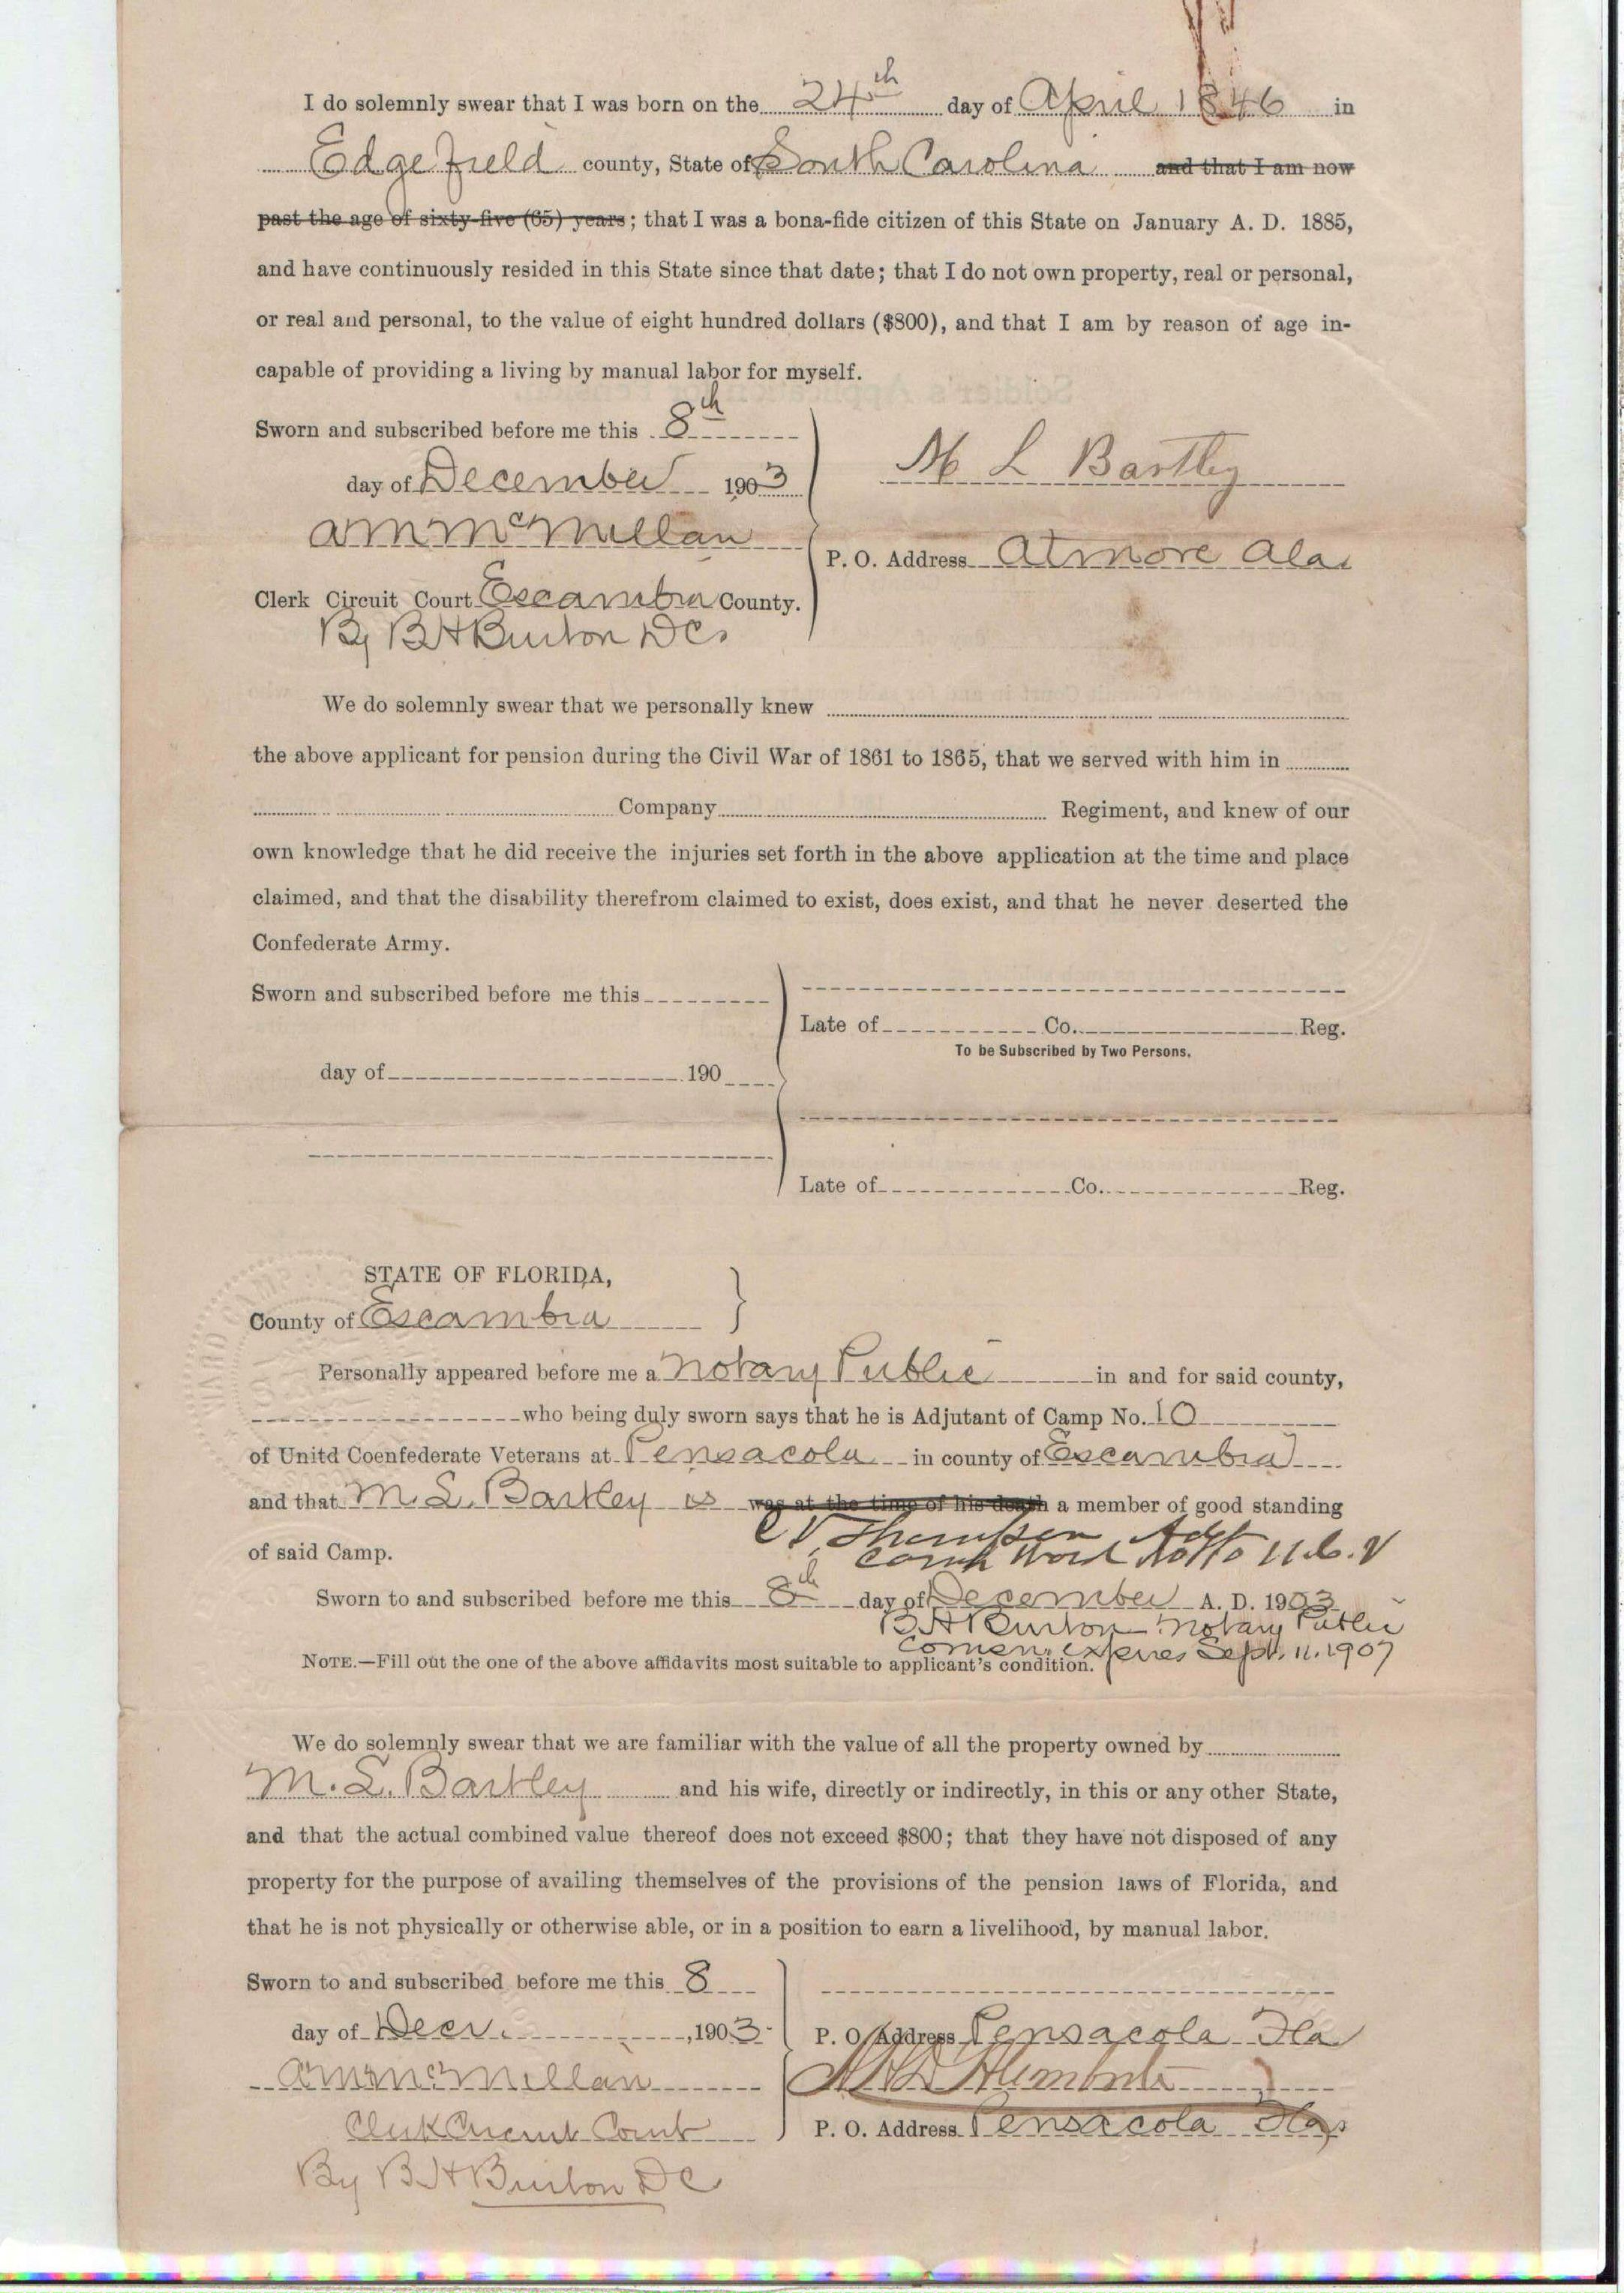 I do solemnly swear that I was born on the 24th day of April 1846 in
Edgefield county, State of South Carolina and that I am now
past the age of sixty-five (65) years; that I was a bona-fide citizen of this State on January A. D. 1885,
and have continuously resided in this State since that date; that I do not own property, real or personal,
or real and personal, to the value of eight hundred dollars ($800), and that I am by reason of age in-
capable of providing a living by manual labor for myself.
Sworn and subscribed before me this 8th
day of December 1903
M L Bartley
A M McMillan
P. O. Address Atmore Ala
Clerk Circuit Court Escambia County.
By B H Burton D C
We do solemnly swear that we personally knew
the above applicant for pension during the Civil War of 1861 to 1865, that we served with him in
Company Regiment, and knew of our
own knowledge that he did receive the injuries set forth in the above application at the time and place
claimed, and that the disability therefrom claimed to exist, does exist, and that he never deserted the
Confederate Army.
Sworn and subscribed before me this
Late of Co. Reg.
To be Subscribed by Two Persons.
day of 190
Late of Co. Reg.
STATE OF FLORIDA,
County of Escambia
Personally appeared before me a Notary Public in and for said county,
who being duly sworn says that he is Adjutant of Camp No. 10
of Unitd Coenfederate Veterans at Pensacola in county of Escambia
and that M. L. Bartley is was at the time of his death a member of good standing
C V Thompson Adjt
of said Camp.
Camp Ward No 10 U.C.V
Sworn to and subscribed before me this 8th day of December A. D. 1903
B H Burton Notary Public
Comsn. expires Sept. 11. 1907
NOTE.—Fill out the one of the above affidavits most suitable to applicant's condition.
We do solemnly swear that we are familiar with the value of all the property owned by
M. L. Bartley and his wife, directly or indirectly, in this or any other State,
and that the actual combined value thereof does not exceed $800; that they have not disposed of any
property for the purpose of availing themselves of the provisions of the pension laws of Florida, and
that he is not physically or otherwise able, or in a position to earn a livelihood, by manual labor.
Sworn to and subscribed before me this 8
day of Decr. , 1903
P. O. Address Pensacola Fla
A M McMillan
Clerk Circuit Court
P. O. Address Pensacola Fla
By B H Burton D C